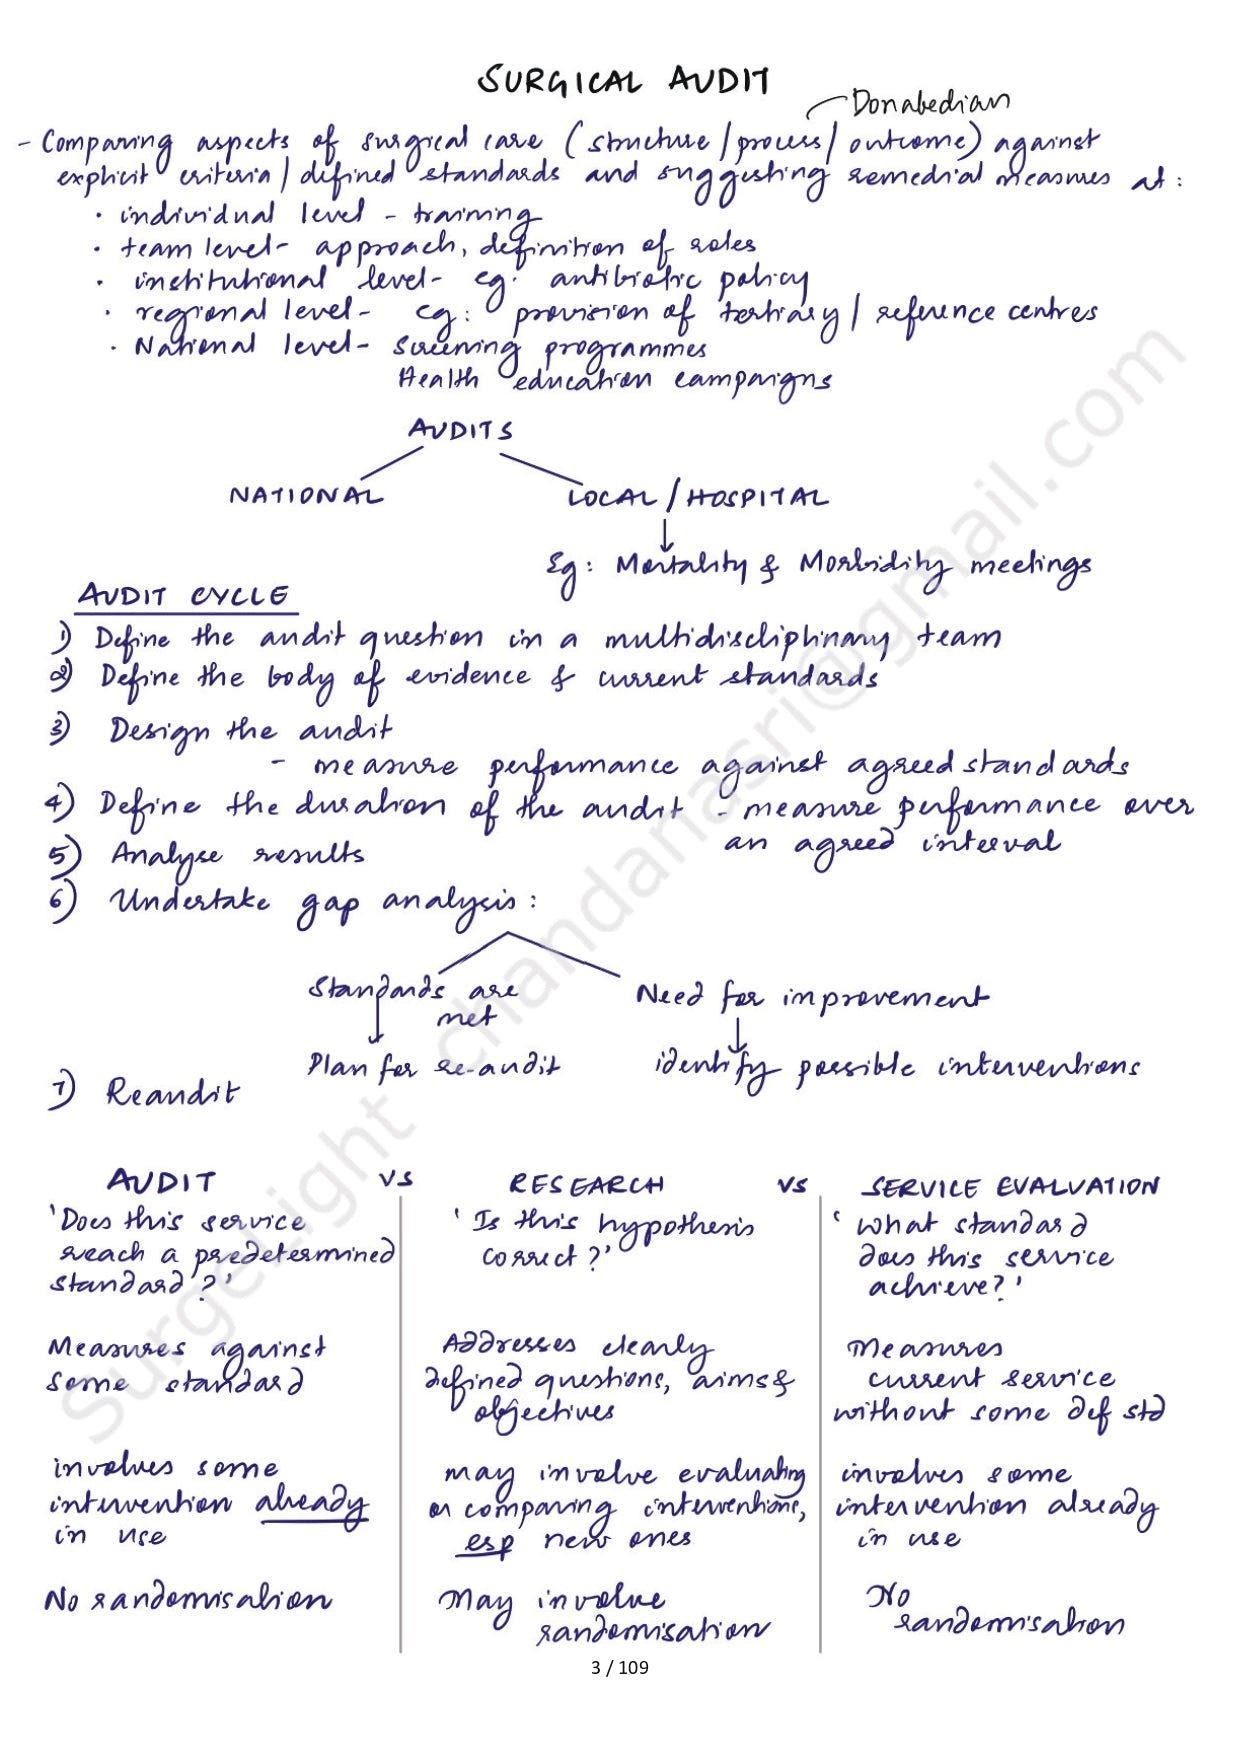 SURGICAL AUDIT
Donabedian
- Comparing aspects of surgical care (structure/process/outcome) against
explicit criteria/defined standards and suggesting remedial measures at:
· individual level - training
· team level- approach, definition of roles
· institutional level- eg. antibiotic policy
· regional level- eg: provision of tertiary/reference centres
· National level- Screening programmes
Health education campaigns
AUDITS
NATIONAL
LOCAL/HOSPITAL
Eg: Mortality & Morbidity meetings
AUDIT CYCLE
1) Define the audit question in a multidiscliphinary team
2) Define the body of evidence & current standards
3) Design the audit
- measure performance against agreed standards
4) Define the duration of the audit - measure performance over
an agreed interval
5) Analyse results
6) Undertake gap analysis:
Standards are
met
Need for improvement
Plan for re-audit
identify possible interventions
7) Reaudit
AUDIT vs RESEARCH vs SERVICE EVALUATION
'Does this service
reach a predetermined
standard?'
'Is this hypothesis
correct?'
'what standard
does this service
achieve?'
Measures against
some standard
Addresses clearly
defined questions, aims &
objectives
Measures
current service
without some def std
involves some
intervention already
in use
may involve evaluating
or comparing interventions,
esp new ones
involves some
intervention already
in use
No randomisation
May involve
randomisation
No
randomisation
SurgeLight chandanasri@gmail.com
3 / 109